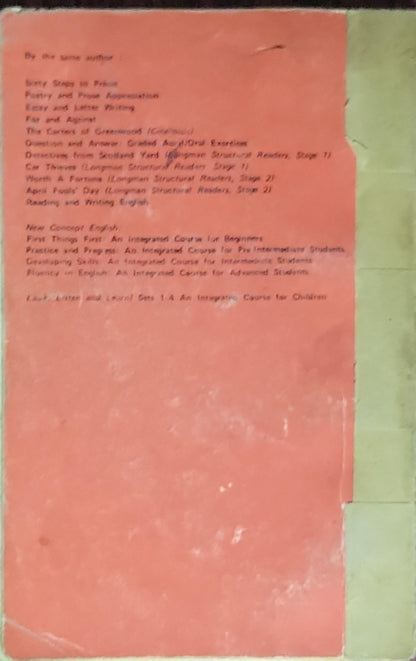 By the same author :
Sixty Steps to Précis
Poetry and Prose Appreciation
Essay and Letter Writing
For and Against
The Carters of Greenwood (Cineloops)
Question and Answer: Graded Aural/Oral Exercises
Detectives from Scotland Yard (Longman Structural Readers, Stage 1)
Car Thieves (Longman Structural Readers, Stage 1)
Worth A Fortune (Longman Structural Readers, Stage 2)
April Fools' Day (Longman Structural Readers, Stage 2)
Reading and Writing English
New Concept English:
First Things First: An Integrated Course for Beginners
Practice and Progress: An Integrated Course for Pre-Intermediate Students
Developing Skills: An Integrated Course for Intermediate Students
Fluency in English: An Integrated Course for Advanced Students
Look, Listen and Learn! Sets 1-4 An Integrated Course for Children